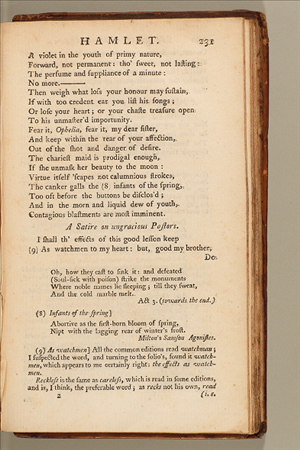 HAMLET. 231
A violet in the youth of primy nature,
Forward, not permanent: tho' sweet, not lasting:
The perfume and suppliance of a minute:
No more.———
Then weigh what loss your honour may sustain,
If with too credent ear you list his songs;
Or lose your heart; or your chaste treasure open
To his unmaster'd importunity.
Fear it, Ophelia, fear it, my dear sister,
And keep within the rear of your affection,
Out of the shot and danger of desire.
The chariest maid is prodigal enough,
If she unmask her beauty to the moon:
Virtue itself 'scapes not calumnious strokes,
The canker galls the (8) infants of the spring,
Too oft before the buttons be disclos'd;
And in the morn and liquid dew of youth,
Contagious blastments are most imminent.
A Satire on ungracious Pastors.
I shall th' effects of this good lesson keep
(9) As watchmen to my heart: but, good my brother,
Do
Oh, how they cast to sink it: and defeated
(Soul-sick with poison) strike the monuments
Where noble names lie sleeping; till they sweat,
And the cold marble melt.
Act 3. (towards the end.)
(8) Infants of the spring]
Abortive as the first-born bloom of spring,
Nipt with the lagging rear of winter's frost.
Milton's Samson Agonistes.
(9) As watchmen] All the common editions read watchman;
I suspected the word, and turning to the folio's, found it watch-
men, which appears to me certainly right: the effects as watch-
men.
Reckless is the same as careless, which is read in some editions,
and is, I think, the preferable word; as recks not his own, read
2 (i. e.